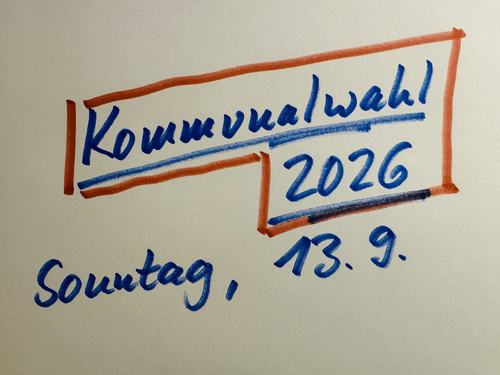 Kommunalwahl
2026
Sonntag, 13.9.